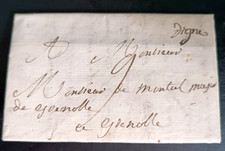 Digne
A Monsieur
Monsieur de monteil
de Grenoble
a Grenoble